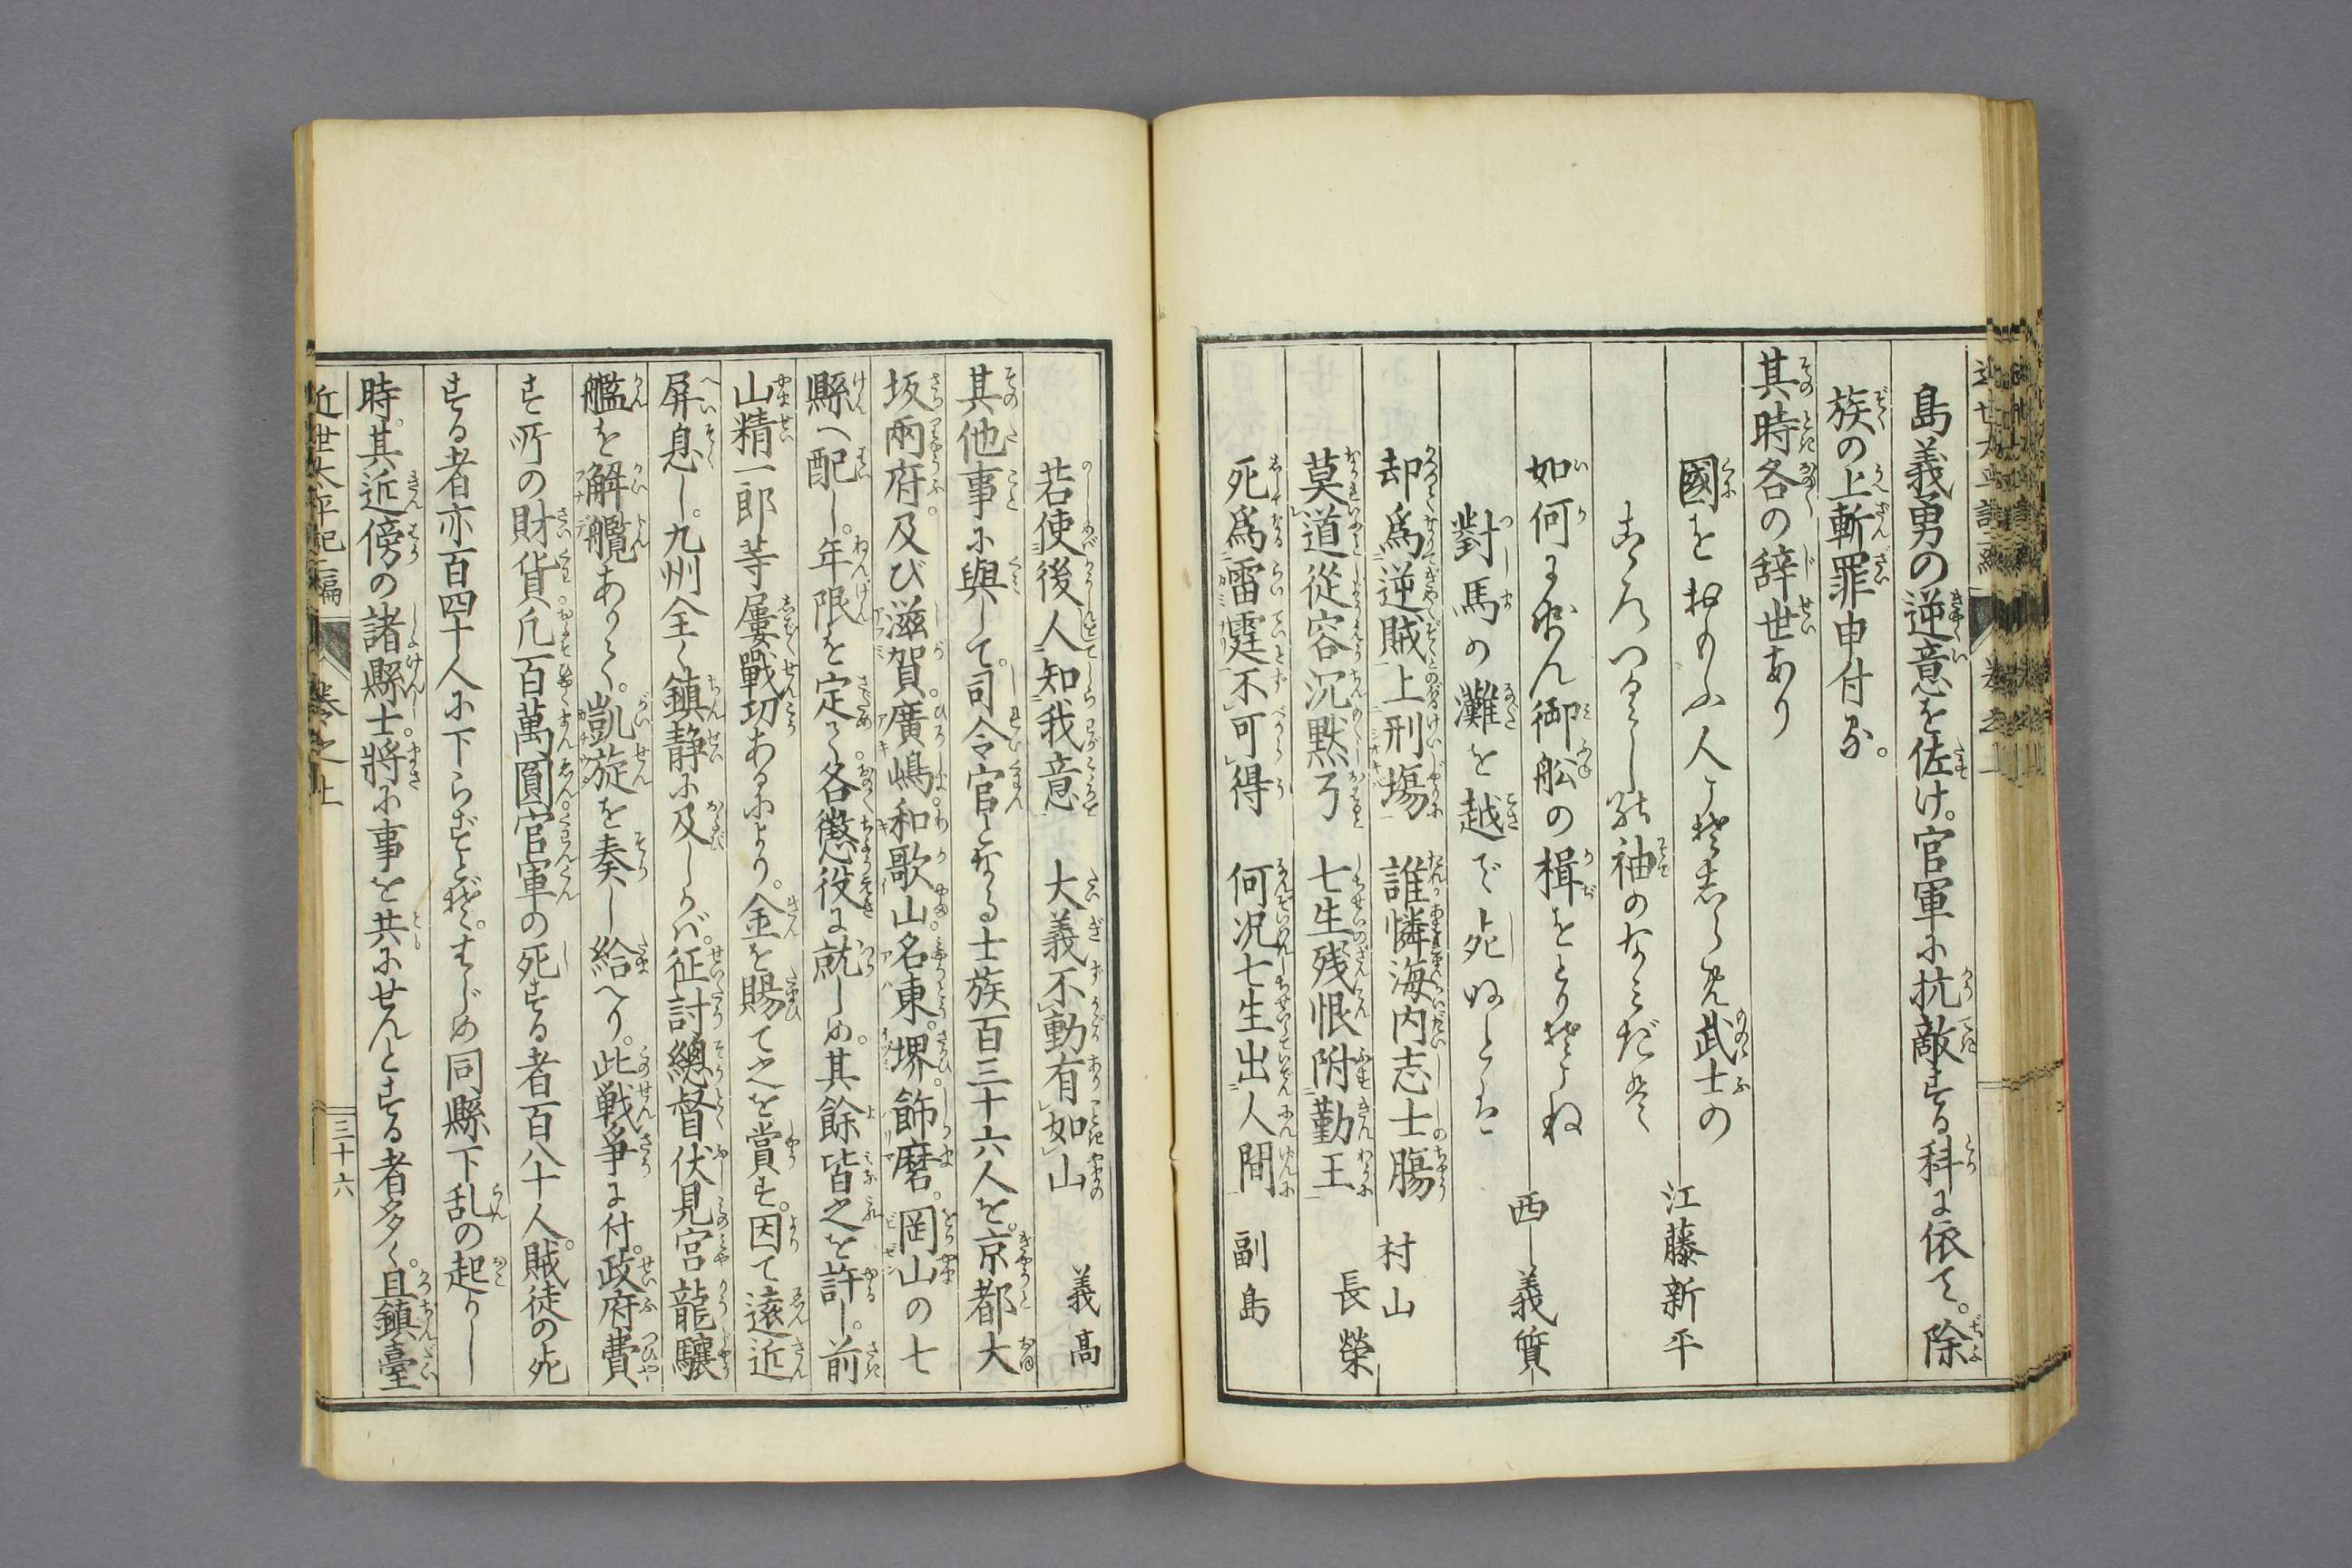 島義勇の逆意を佐け。官軍に抗敵する科に依て。除
族の上斬罪申付る。
其時各の辞世あり
國をおもふ人こそしらめ武士の
こゝろつくしの袖のなみだを
江藤新平
如何にせん御舩の楫をとりそこね
對馬の灘を越で死ぬとは
西　義質
却爲逆賊上刑場　誰憐海内志士膓　村山
莫道從容沉默丂　七生残恨附勤王　長榮
死爲雷霆不可得　何况七生出人間　副島
若使後人知我意　大義不動有如山　義高
其他事に與して。司令官となる士族百三十六人を。京都大
坂兩府。及び滋賀。廣嶋。和歌山。名東。堺。飾磨。岡山の七
縣へ配し。年限を定て。各懲役に就しめ。其餘皆之を許し。前
山精一郎等屢戰功あるにより。金を賜て之を賞す。因て遠近
屏息し。九州全く鎮静に及しかバ。征討總督伏見宮龍驤
艦を解䌫ありて。凱旋を奏し給へり。此戦争に付。政府費
す所の財貨。凡百萬圓。官軍の死する者百八十人。賊徒の死
する者亦百四十人に下らずとぞ。はじめ同縣下乱の起りし
時。其近傍の諸縣士。將に事を共にせんとする者多く。且鎮臺
近世太平記二編　卷之上　三十六